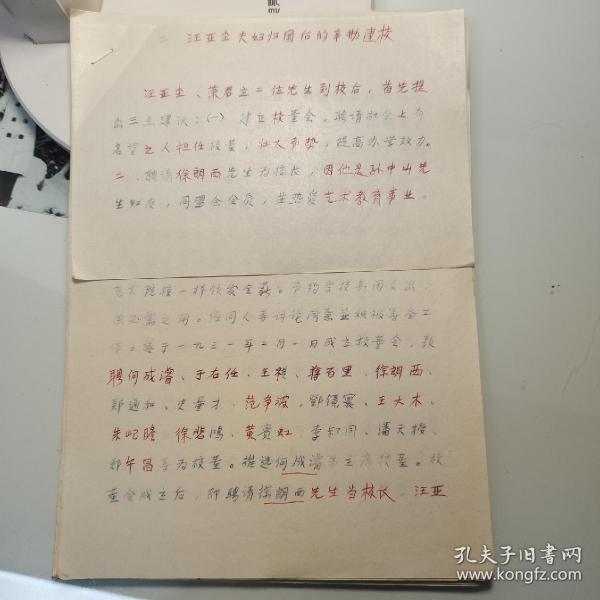 二 汪亚尘夫妇归国后的辛勤建校
汪亚尘、荣君立二位先生到校后，首先提
出三点建议：(一) 建立校董会。聘请社会上有
名望之人担任校董，壮大声势，提高办学效力。
二、聘请徐朗西先生为校长，因他是孙中山先
生知友，同盟会会员，并热爱艺术教育事业。
一样领发全薪。节约学校新闻支出，
供必需之用。经同人等讨论同意並积极筹备工
作。终于一九三一年二月一日成立校董会，敦
聘何成濬、于右任、王祺、蒋百里、徐朗西、
郑通和、史量才、范争波、鄧镜寰、王大木、
朱屺瞻 徐悲鸿、黄贵 李叔同、潘天授、
郑午昌等为校董。推选何成濬为主席校董。校
董会成立后，即聘请徐朗西先生当校长，汪亚
孔夫子旧书网
www.kongfz.com